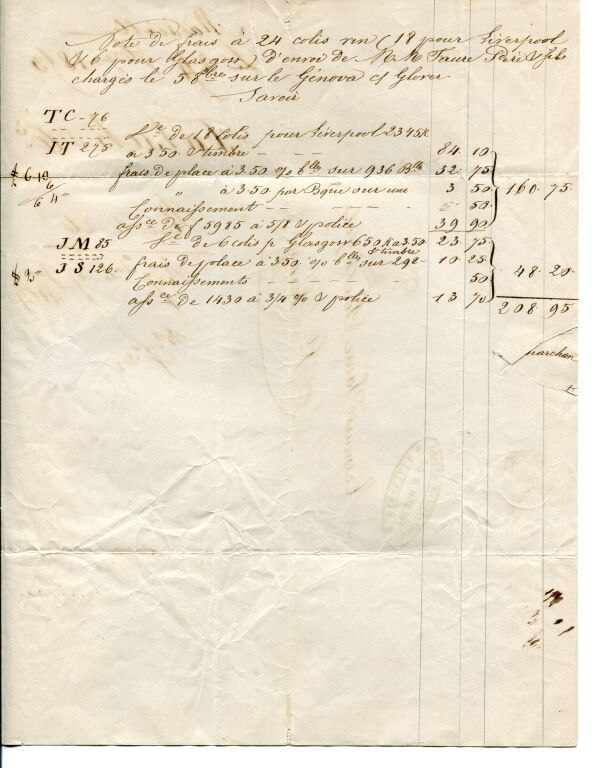 Note de frais à 24 colis vin (18 pour Liverpool
& 6 pour Glasgow) d'envoi de M.M Faure Père & fils
chargés le 5 8bre sur le Génova c/ Glover
Savoir
TC - 76
IT 275
Fr de 18 colis pour Liverpool 2345K
à 3.50 & timbre - - - 84 10
frais de place à 3.50 % blles sur 936 Blles 32 75
" à 3.50 par Bque sur une 3 50 160 75
Connaissement - - - 50
assce de f 5985 à 5/8 & police 39 90
JM 85 Fr de 6 colis p Glasgow 650K à 3.50 & timbre 23 75
JS 126. frais de place à 3.50 % blles sur 292 - 10 25
Connaissements - - - 50 48 20
assce de 1430 à 3/4 % & police 13 70
208 95
marchan